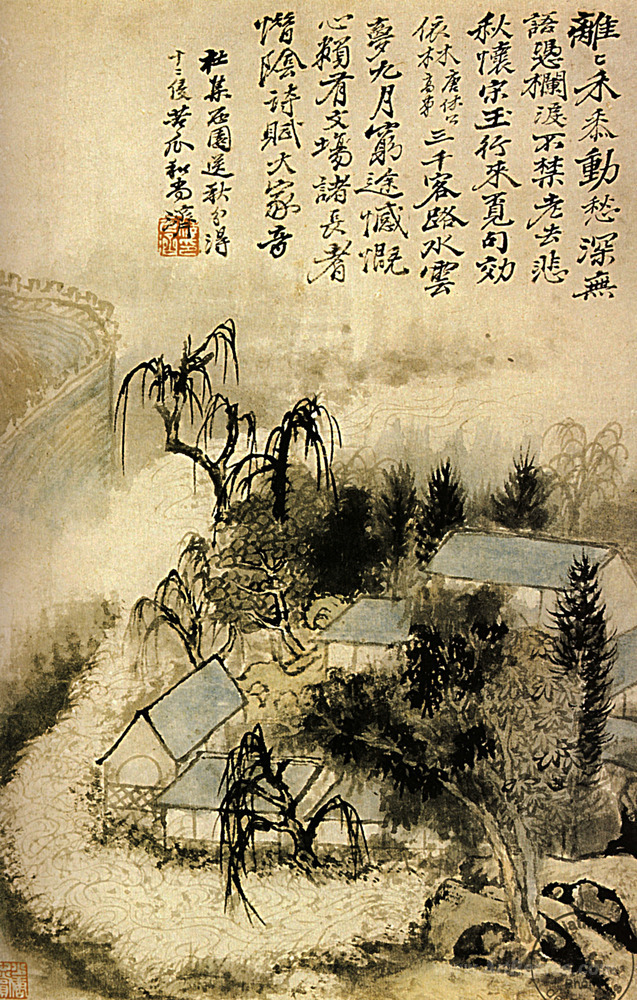 離〻禾黍動愁深無
語憑欄淚不禁老去悲
秋懷宋玉行來覓句効
依木三千客路水雲
夢九月窮途憾慨
心賴有文場諸長者
惜陰詩賦大家音
社集石園送秋分得
十二侵苦瓜和尚濟